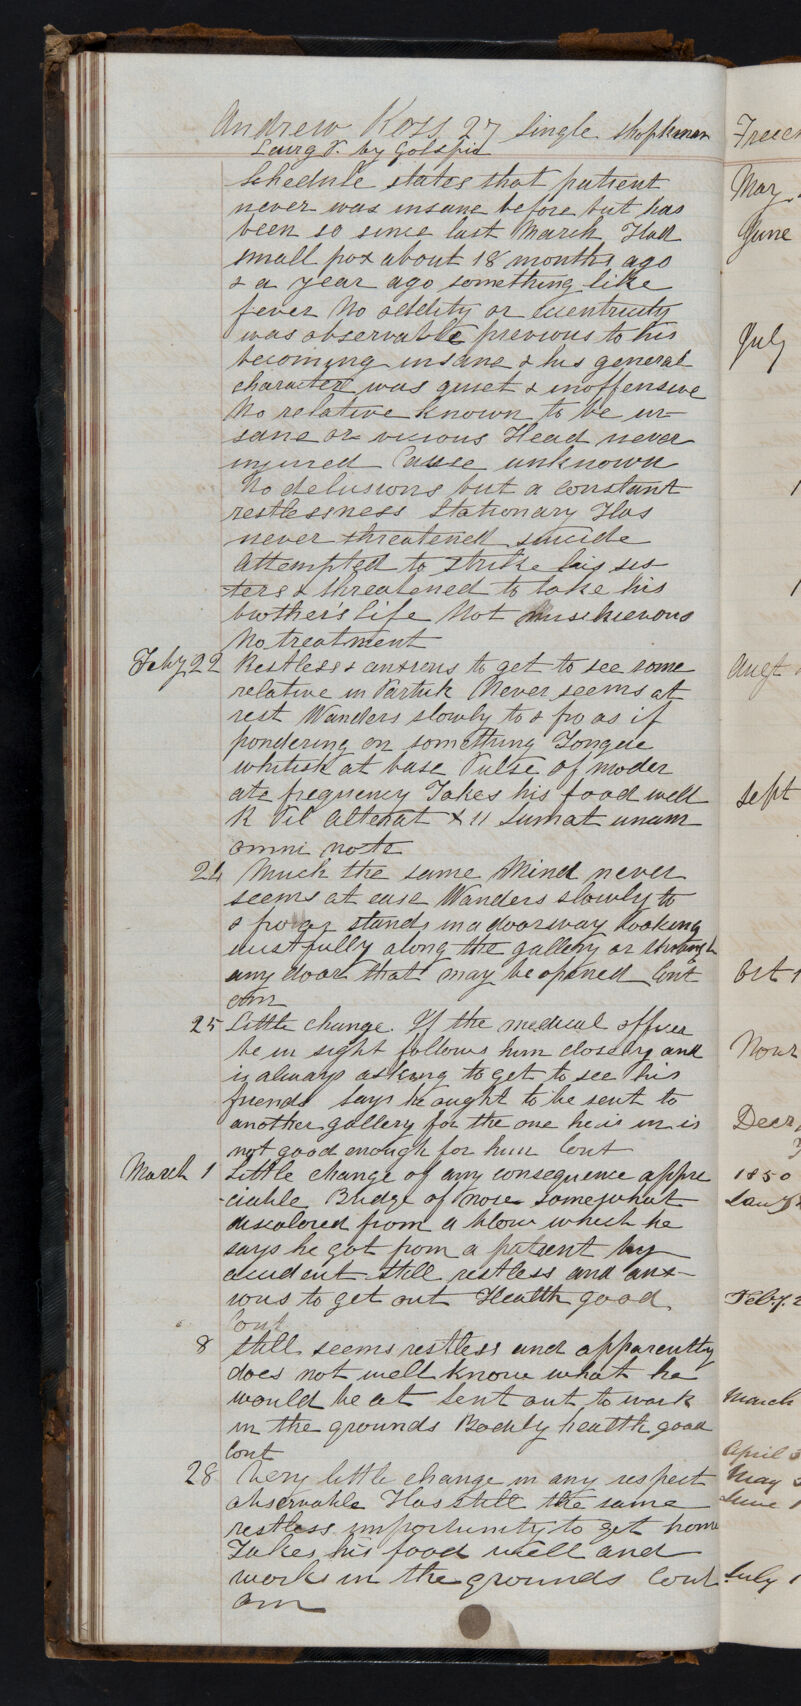 Andrew Ross 27 Single Shopkman
Lairg P. by Golspie
Schedule states that patient
never was insane before but has
been so since last March Had
small pox about 18 months ago
& a year ago something like
fever No oddity or eccentricity
was observable previous to his
becoming insane & his general
character was quiet & inoffensive
No relative known to be in-
sane or vicious Head never
injured Cause unknown
No delusions but a constant
restlessness Stationary Has
never threatened suicide
Attempted to strike his sis-
ters & threatened to take his
brother's life Not mischievous
No treatment
Feby 22 Restless & anxious to get to see some
relative in Partick Never seems at
rest Wanders slowly to & fro as if
pondering on something Tongue
whitish at base Pulse of moder
ate frequency Takes his food well
R Pil Alterat X 11 Sumat unam
omni nocte
24 Much the same Mind never
seems at ease Wanders slowly to
& fro or stands in a doorway looking
wistfully along the gallery or through
any door that may be opened Cont
om
25 Little change. If the medical officer
be in sight follows him closely and
is always asking to get to see his
friends says he ought to be sent to
another gallery for the one he is in is
not good enough for him Cont
March 1 Little change of any consequence appre
-ciable Bridge of nose somewhat
discolored from a blow which he
says he got from a patient by
accident Still restless and anx-
ious to get out Health good
Cont
8 Still seems restless and apparently
does not well know what he
would be at Sent out to work
in the grounds Bodily health good
Cont
28 Very little change in any respect
observable Has still the same
restless importunity to get home
Takes his food well and
works in the grounds Cont
om
May
June
July
1
1
Augt
Sept
Oct 1
Novr
Decr
1850
Jany
Feby. 2
March
April
May
June
July 1